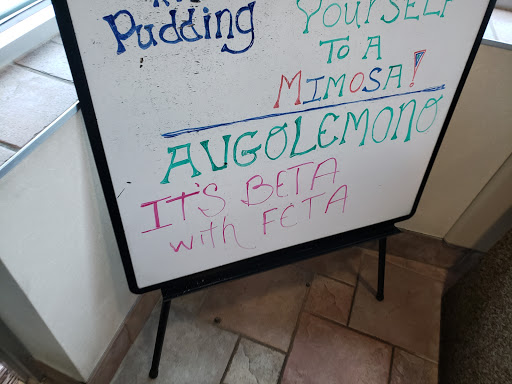 Pudding
YOURSELF
TO A
MIMOSA!
AVGOLEMONO
IT'S BETA
with FETA